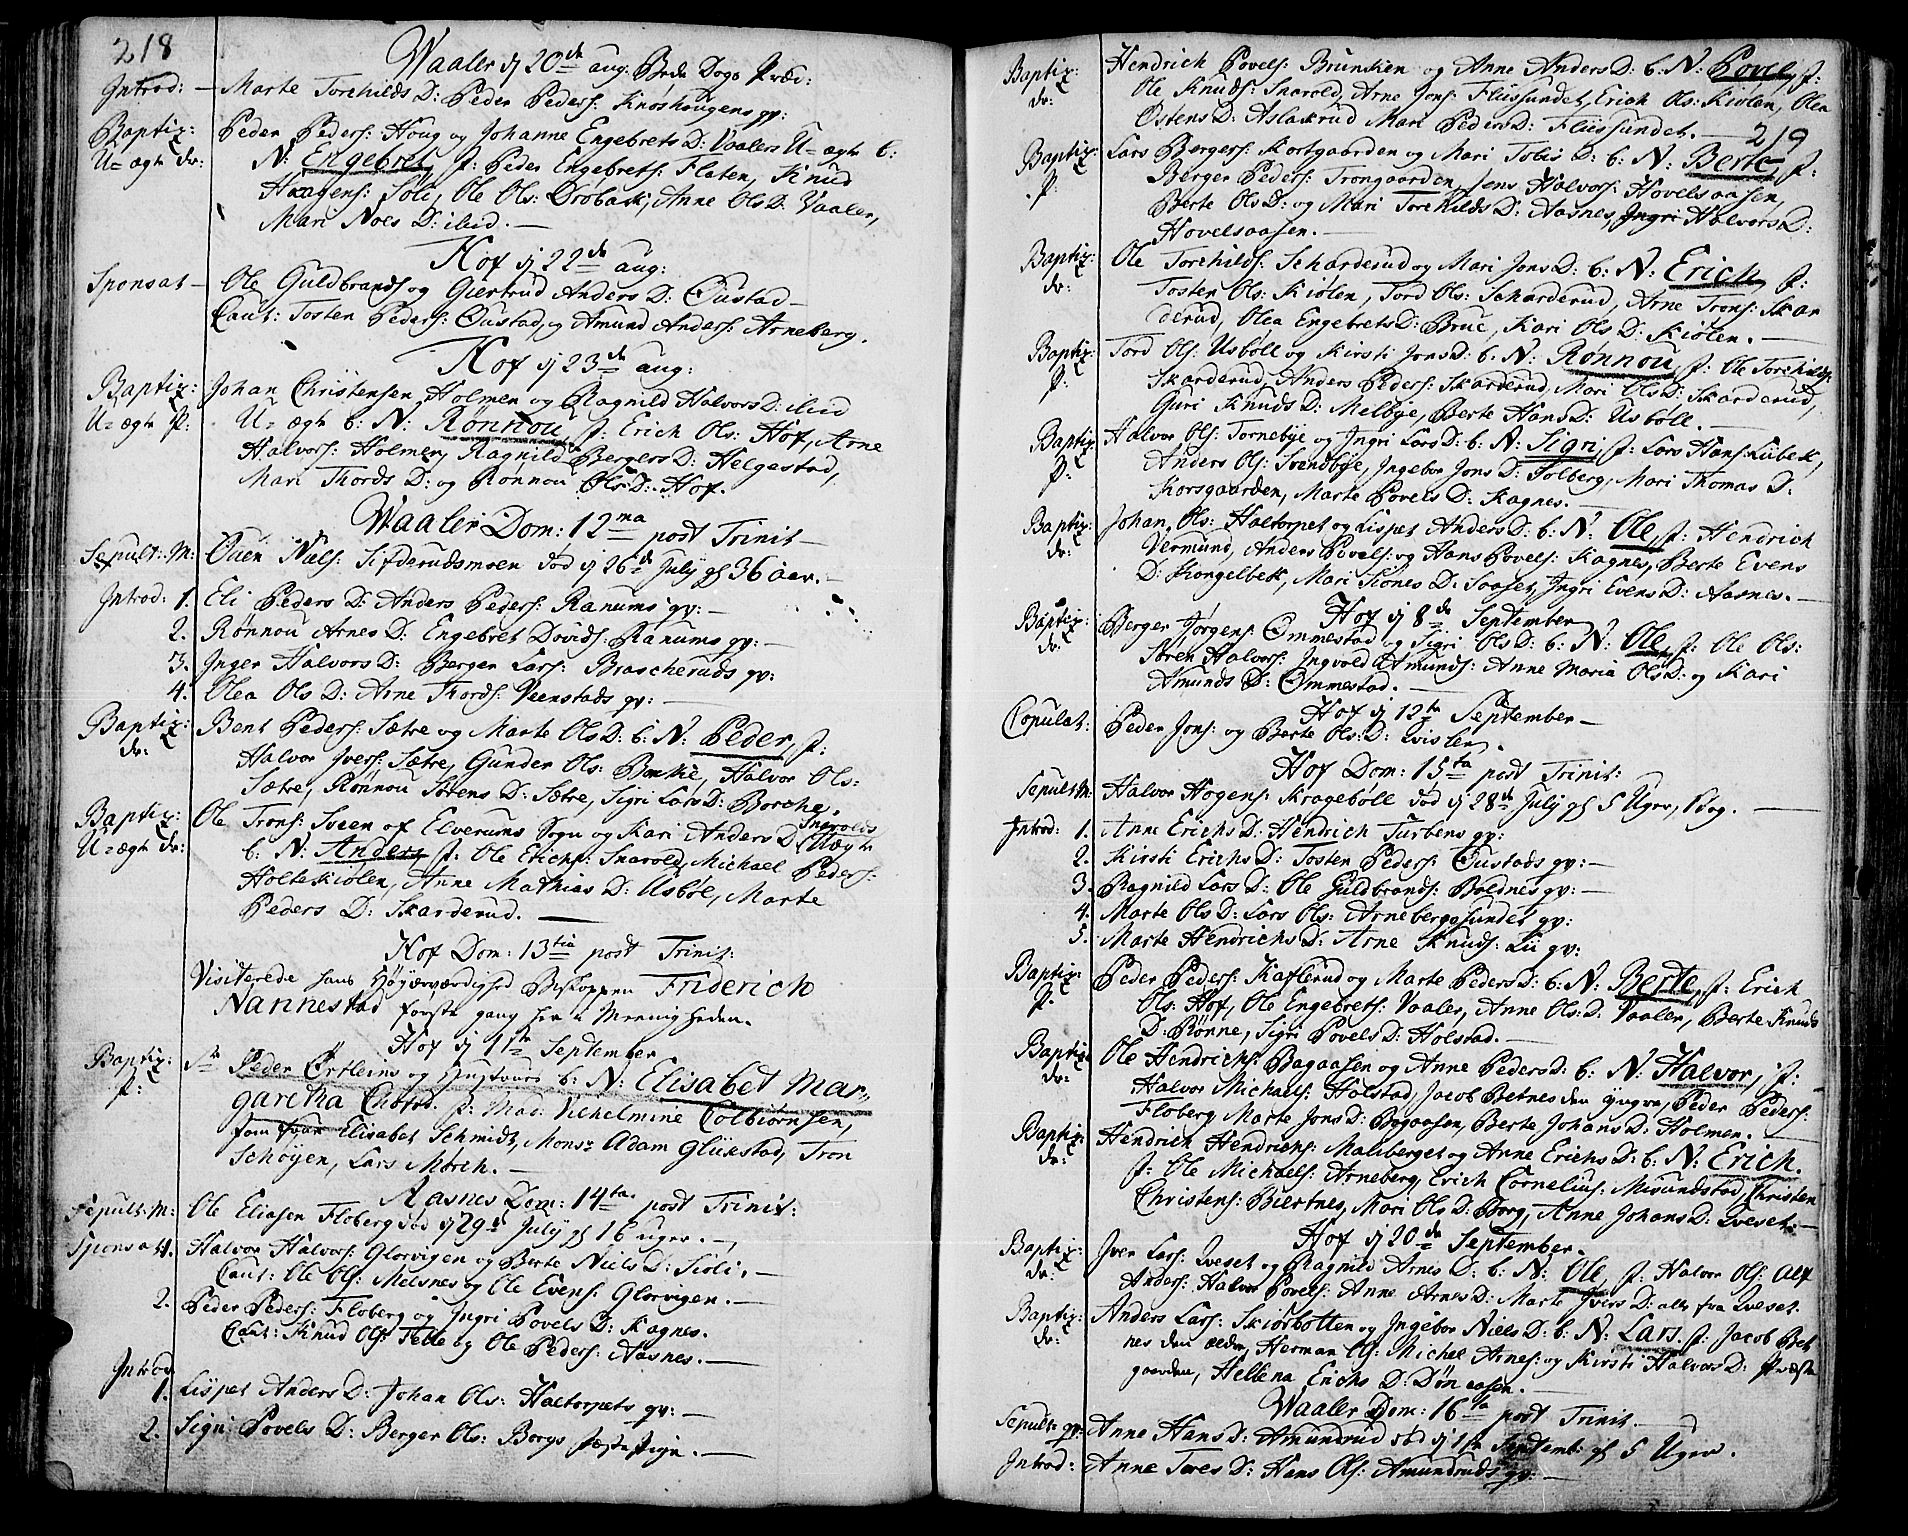 218
Waaler d 20de aug. Beds Dags Præd:
Introd: — Marte Torchilds D: Peder Peders: Knoshougens qv:
Baptiz: Peder Peders: Houg og Johanne Engebrets D: Vaalers U=ægte b:
U=ægte dr: N: Engebret, f: Peder Engebrets: Flaten, Knud
Haagens: Søli, Ole Ols: Drøbak, Anne Ols D: Vaaler,
Mari Noes D: ibid. —
Hof d 22de aug:
Sponsat — Ole Guldbrands: og Giertrud Anders D: Øustad —
Caut: Tosten Peders: Øustad, og Amund Anders: Arneberg.
Hof d 23de aug:
Baptiz: Johan Christensen Holmen og Ragnild Halvors D: ibid
U=ægte P: U=ægte b: N: Rønnou f: Erich Ols: Hof, Arne
Halvors: Holmen, Ragnild Bergers D: Helgestad,
Mari Thords D: og Rønnou Ols D: Hof.
Waaler Dom: 12ma post Trinit —
Sepult: M: Ouen Niels: Sifderudsmoen død d 26de July gl 36 aar. —
Introd: 1. Eli Peders D: Anders Peders: Ranums qv: —
2. Rønnou Arnes D: Engebret Dovids: Ranums qv: —
3. Inger Halvors D: Berger Lars: Brascheruds qv:
4. Olea Ols D: Arne Thords: Veenstads qv: —
Baptiz: Bent Peders: Sætre og Marte Ols D: b: N: Peder, f:
dr: Halvor Ivers: Sætre, Gunder Ols: Borche, Halvor Ols:
Sætre, Rønnou Sørens D: Sætre, Sigri Lars D: Borche.
Baptiz: Ole Trons: Sveen af Elverums Sogn og Kari Anders D: Snarolds
U=ægte dr: Uægte b: N: Anders f: Ole Erichs: Snarold, Michael Peders:
Holteskiølen, Anne Mathias D: Usbøl, Marte
Peders D: Skarderud. —
Hof Dom: 13tia post Trinit:
Visiterede hans Høyærværdighed Biskoppen Friderich
Nannestad første gang her i Menigheden.
Hof d 11te September
Baptiz: Sr Peder Ørtleins og Hustrues b: N: Elisabet Mar-
P: garetha f: Mad: Vilhelmine Colbiørnsen,
som Elisabet Schmidt, Monsr Adam Glüestad, Tron
Schøyen, Lars Mørch. —
Aasnes Dom: 14ta post Trinit:
Sepult: M: Ole Eliasen Floberg død d 29de July gl 16 uger. —
Sponsat: 1. Halvor Halvors: Glorvigen og Berte Niels D: Sioli. —
Caut: Ole Ols: Melsnes og Ole Evens: Glorvigen. —
2. Peder Peders: Floberg og Ingri Povels D: Kagnes.
Caut: Knud Ols: Tette og Ole Peders: Aasnes. —
Introd
1. Lispet Anders D: Johan Ols: Haltorpets qv: —
2. Sigri Povels D: Berger Ols: Borgs
Baptiz: Hendrich Povels: Brunkien og Anne Anders D: b: N: Povel, f:
dr: Ole Knuds: Snarold, Arne Jons: Fliissundet, Erich Ols: Kiølen, Olea
Østens D: Aslakrud Mari Peders D: Fliissundet. —
219
Baptiz: Lars Bergers: Kortgaarden og Mari Tobis D: b: N: Berte, f:
P: Berger Peders: Trongaarden, Jens Halvors: Hovelsaasen,
Berte Ols D: og Mari Torchilds D: Aasnes, Ingri Halvors D:
Hovelsaasen. —
Baptiz: Ole Torchilds: Scharderud og Mari Jons D: b: N: Erich, f:
dr: Tosten Ols: Kiølen, Tord Ols: Scharderud, Arne Trons: Skar
derud, Olea Engebrets D: Brue, Kari Ols D: Kiølen. —
Baptiz: Tord Ols: Usbøll og Kirsti Jons D: b: N: Rønnou, f: Ole Torchilds:
P: Skarderud, Anders Peders: Skarderud, Mari Ols D: Skarderud,
Guri Knuds D: Melbye, Berte Hans D: Usbøll. —
Baptiz: Halvor Ols: Tornebye og Ingri Lars D: b: N: Sigri, f: Lars Hans: Lübek,
P: Anders Ols: Svendbye, Ingebor Jons D: Solberg, Mari Thomas D:
Korsgaarden, Marte Povels D: Kagnes. —
Baptiz: Johan Ols: Haltorpet og Lispet Anders D: b: N: Ole, f: Hendrich
dr: Vermund, Anders Povels: og Hans Povels: Kagnes, Berte Evens
D: Kongelbek, Mari Siones D: Saaset, Ingri Evens D: Aasnes. —
Hof d 8de September
Baptiz: Berger Jørgens: Ommestad og Sigri Ols D: b: N: Ole, f: Ole Ols:
dr: Søren Halvors: Ingvold Amunds: Anne Maria Ols D: og Kari
Amunds D: Ommestad. —
Hof d 12te September —
Copulat: Peder Jons: og Berte Ols: D: Qvislen.
Hof Dom: 15ta post Trinit:
Sepult M: Halvor Hogens: Kragebøll død d 28de July gl 5 Uger, 1 dag. —
Introd: 1. Anne Erichs D: Hendrich Turbens qv:
2. Kirsti Erichs D: Tosten Peders: Øustads qv: —
3. Ragnild Lars D: Ole Guldbrands: Boldnes qv: —
4. Marte Ols D: Lars Ols: Arnebergsundet qv:
5. Marte Hendrichs D: Arne Knuds: Lii qv:
Baptiz: Peder Peders: Kaflerud og Marte Peders D: b: N: Berte, f: Erich
P: Ols: Hof, Ole Engebrets: Vaaler, Anne Ols: D: Vaaler, Berte Knuds
D: Rønne, Sigri Povels D: Holstad. —
Baptiz: Ole Hendrichs: Bagaasen og Anne Peders D: b: N: Halvor, f:
dr: Halvor Michaels: Holstad, Jacob Betnes den yngre, Peder Peders:
Floberg, Marte Jons D: Bagaasen, Berte Johans D: Holmen. —
Baptiz: Hendrich Hendrichs: Malsberget og Anne Erichs D: b: N: Erich.
dr: f: Ole Michaels: Arneberg, Erich Cornelius: Misundstad, Christen
Christens: Biertnes, Mari Ols D: Borg, Anne Johans D: Qveset. —
Hof d 20de September.
Baptiz: Iver Lars: Qveset og Ragnild Arnes D: b: N: Ole, f: Halvor Ols: Alf
dr: Anders: Halvor Povels: Anne Arnes D: Marte Ivers D: alle fra Qveset.
Baptiz: Anders Lars: Skiørbotten og Ingebor Niels D: b: N: Lars f: Jacob Bet
dr: nes den ældre, Herman Ols: Michel Arnes: og Kirsti Halvors D: Præste
gaarden, Hellena Erichs D: Dønaasen. —
Waaler Dom: 16ta post Trinit. —
Sepult: qv: Anne Hans D: Amundrud død d 1ste Septemb: gl 5 Uger.
Introd: Anne Tores D: Hans Ols: Amundruds qv: —